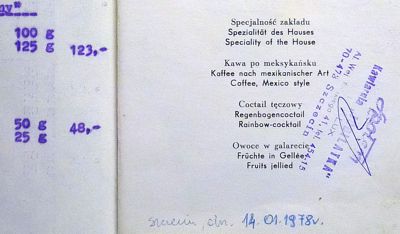 ny"
100 g
125 g 123,-
50 g 48,-
25 g
Specjalność zakładu
Spezialität des Hauses
Speciality of the House
Kawa po meksykańsku
Kaffee nach mexikanischer Art
Caffee, Mexico style
Coctail tęczowy
Regenbogencoctail
Rainbow-cocktail
Owoce w galarecie
Früchte in Gellée
Fruits jellied
Kawiarnia
70-478 Szczecin
tel. 454-15
14.01.1978r.